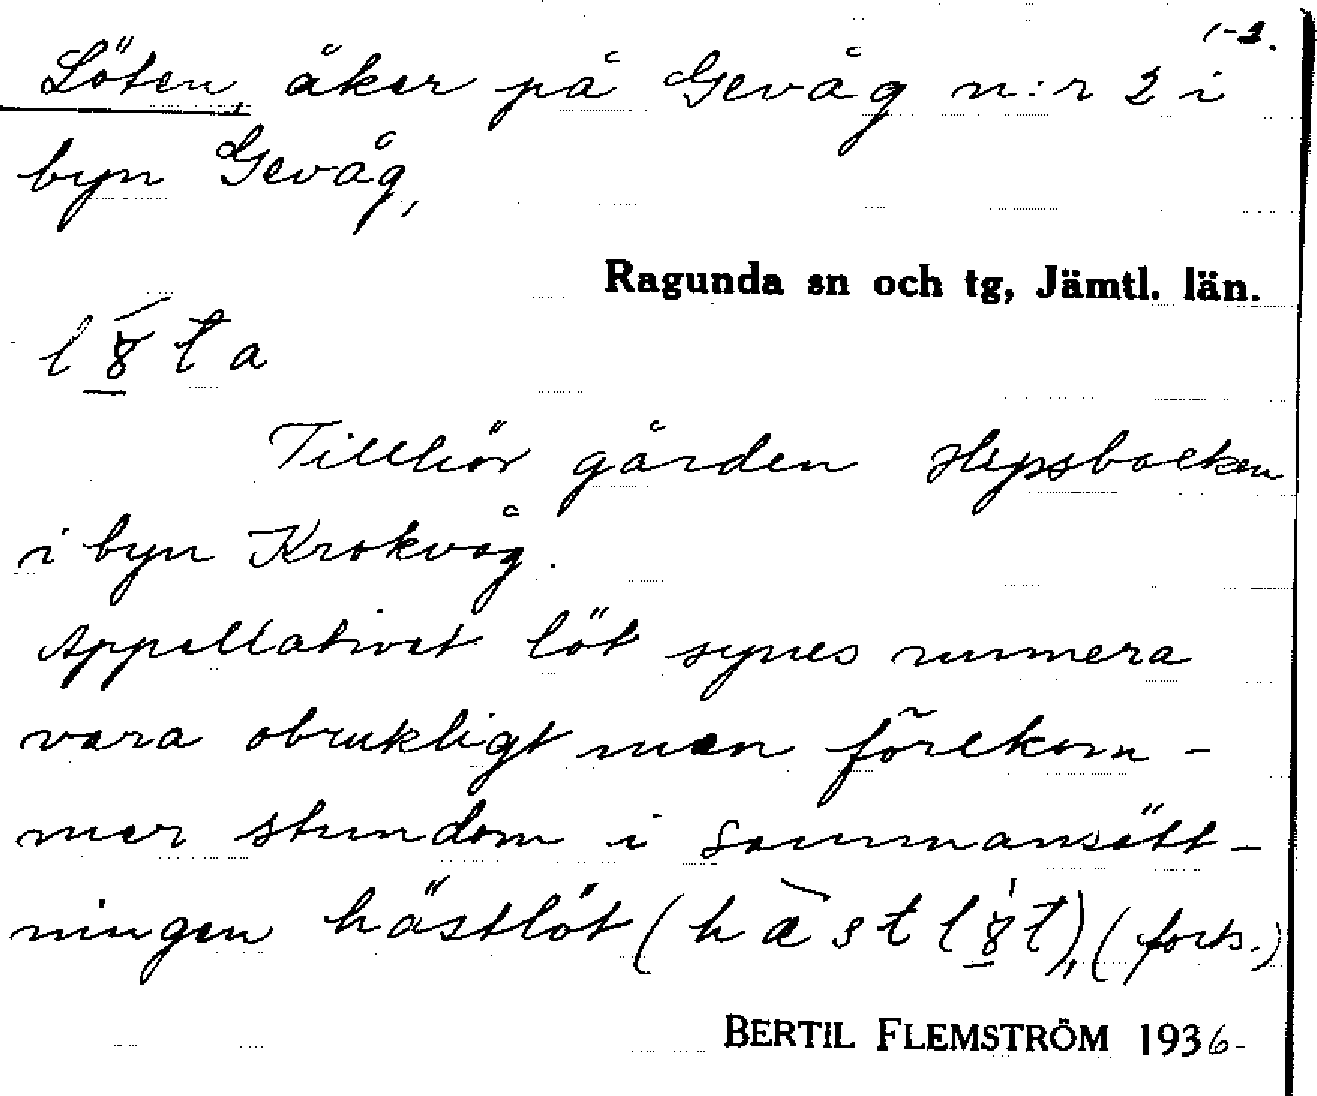 1-2.
Löten, åker på Gevåg n:r 2 i
byn Gevåg,
Ragunda sn och tg, Jämtl. län.
l8ta
Tillhör gården Hepsbacken
i byn Krokvåg.
Appellativet löt synes numera
vara obrukligt men förekom-
mer stundom i sammansätt-
ningen hästlöt (hàstl8t), (forts.)
BERTIL FLEMSTRÖM 1936-